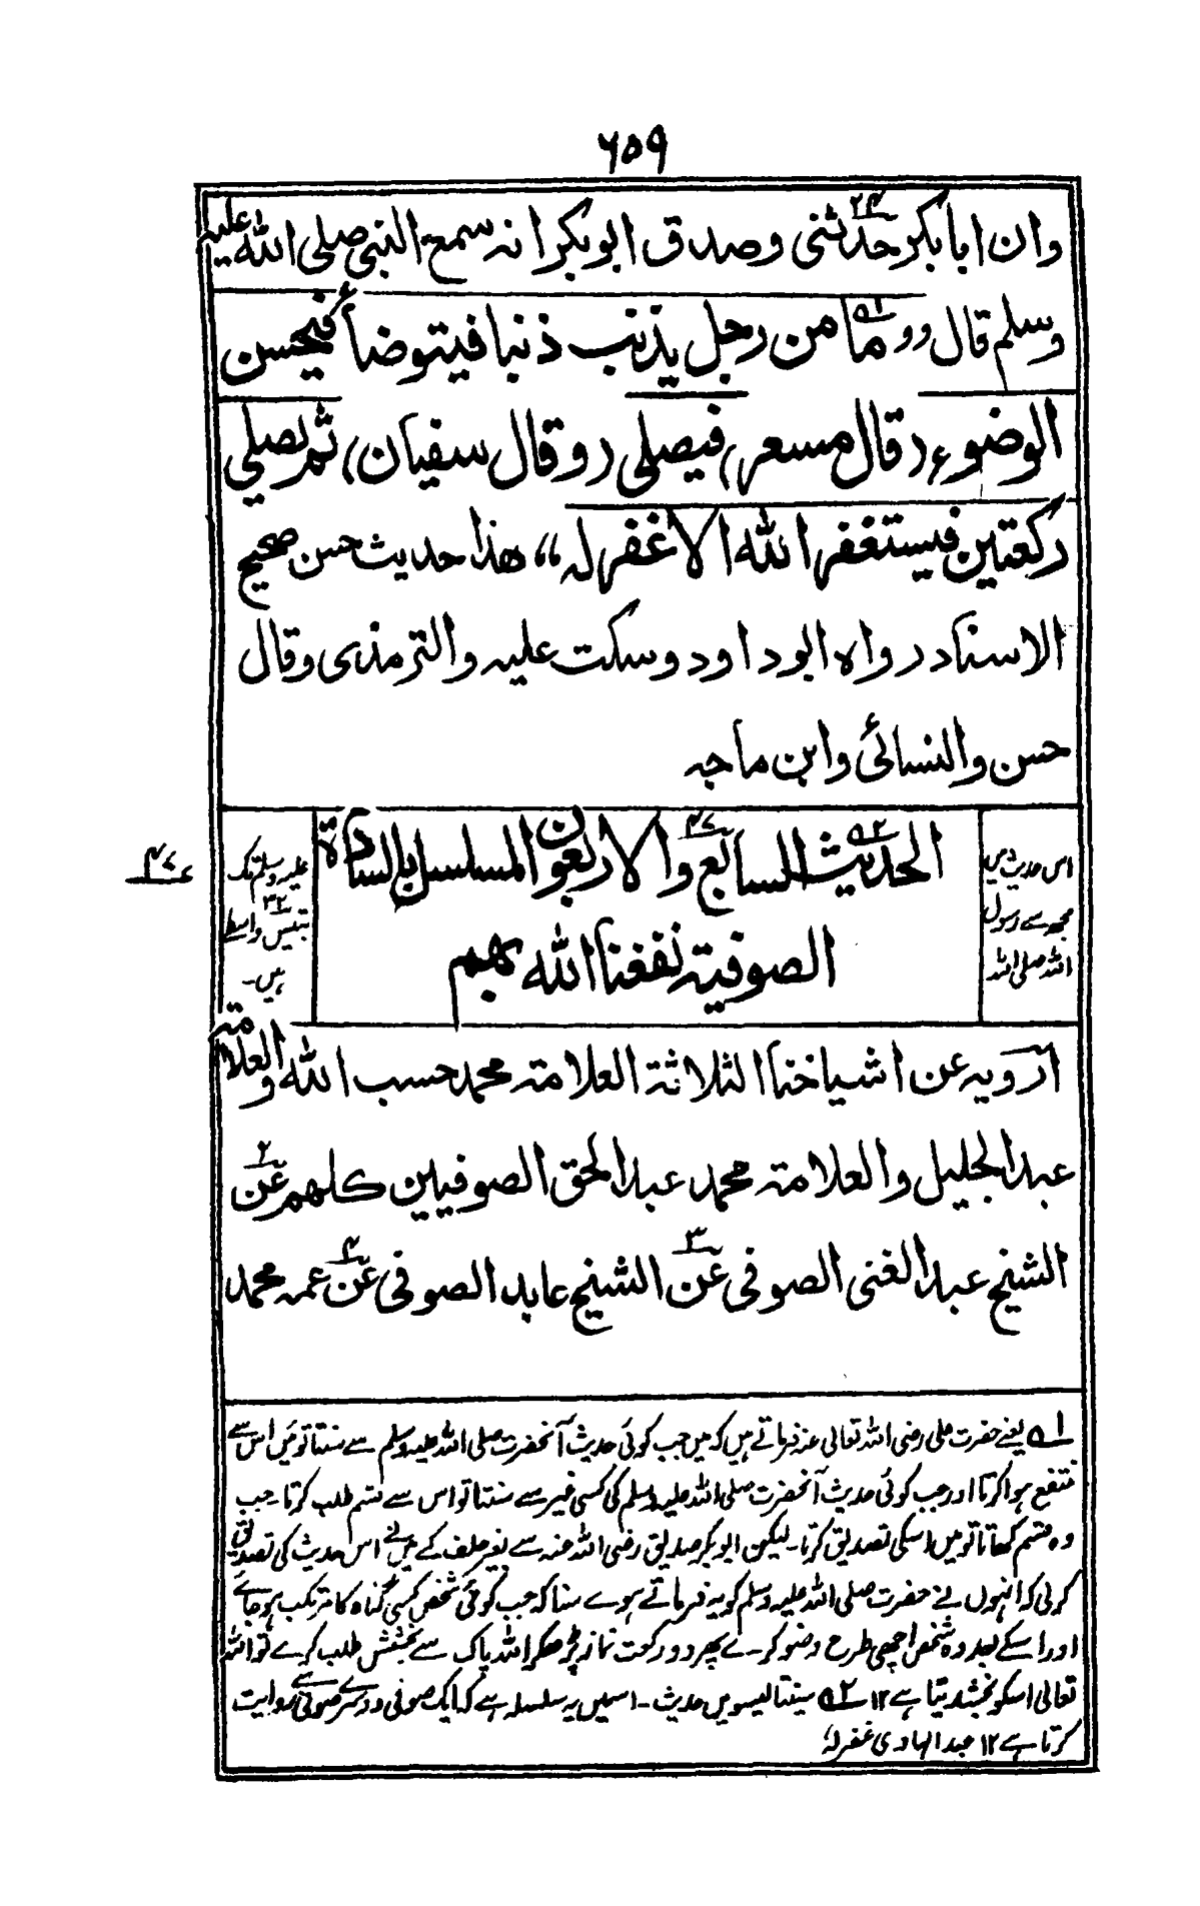 ٦٥٩
وان ابا بكر حدثنی وصدق ابو بكر انه سمع النبی صلی الله علیه
٢٤
وسلم قال وو ما من رجل یذنب ذنبا فیتوضأ فیحسن
الوضوء (قال مسعر) فیصلی (وقال سفیان) ثم یصلی
ركعتین فیستغفر الله الا غفر له ،، هذا حدیث حسن صحیح
الاسناد رواه ابو داود وسكت علیه والترمذی وقال
حسن والنسائی وابن ماجه
الحدیث السابع والاربعون المسلسل بالسادة
الصوفیة نفعنا الله بهم
٤٧
اس حدیث میں
مجھ سے رسول
الله صلی الله
علیه وسلم تک
بتیس واسطے
٣٢
ہیں۔
ارویه عن اشیاخنا الثلاثة العلامة محمد حسب الله والعلامة
عبد الجلیل والعلامة محمد عبد الحق الصوفیین كلهم عن
٢
الشیخ عبد الغنی الصوفی عن الشیخ عابد الصوفی عن عمه محمد
٣ ٤
ا؎ یعنے حضرت علی رضی الله تعالی عنه فرماتے ہیں کہ میں جب کوئی حدیث آنحضرت صلی الله علیه وسلم سے سنتا تو میں اس سے
منتفع ہوا کرتا اور جب کوئی حدیث آنحضرت صلی الله علیه وسلم کی کسی غیر سے سنتا تو اس سے قسم طلب کرتا۔ جب
وہ قسم کھاتا تو میں اسکی تصدیق کرتا۔ لیکن ابو بکر صدیق رضی الله عنه سے بغیر حلف کے میں نے اس حدیث کی تصدیق
کرلی کہ انہوں نے حضرت صلی الله علیه وسلم کو یہ فرماتے ہوے سنا کہ جب کوئی شخص کسی گناہ کا مرتکب ہو جائے
اور اسکے بعد وہ شخص اچھی طرح وضو کرے پھر دو رکعت نماز پڑھکر الله پاک سے بخشش طلب کرے تو الله
تعالی اسکو بخشدیتا ہے ١٢ ٢؎ سینتالیسویں حدیث ۔ اسمیں یہ سلسلہ ہے کہ ایک صوفی دوسرے صوفی سے روایت
کرتا ہے ١٢ عبد الهادی غفرله